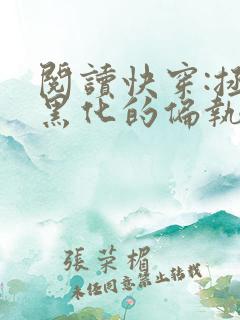 閱讀快穿:
黑化的偏執
張榮楣
未经同意禁止转载